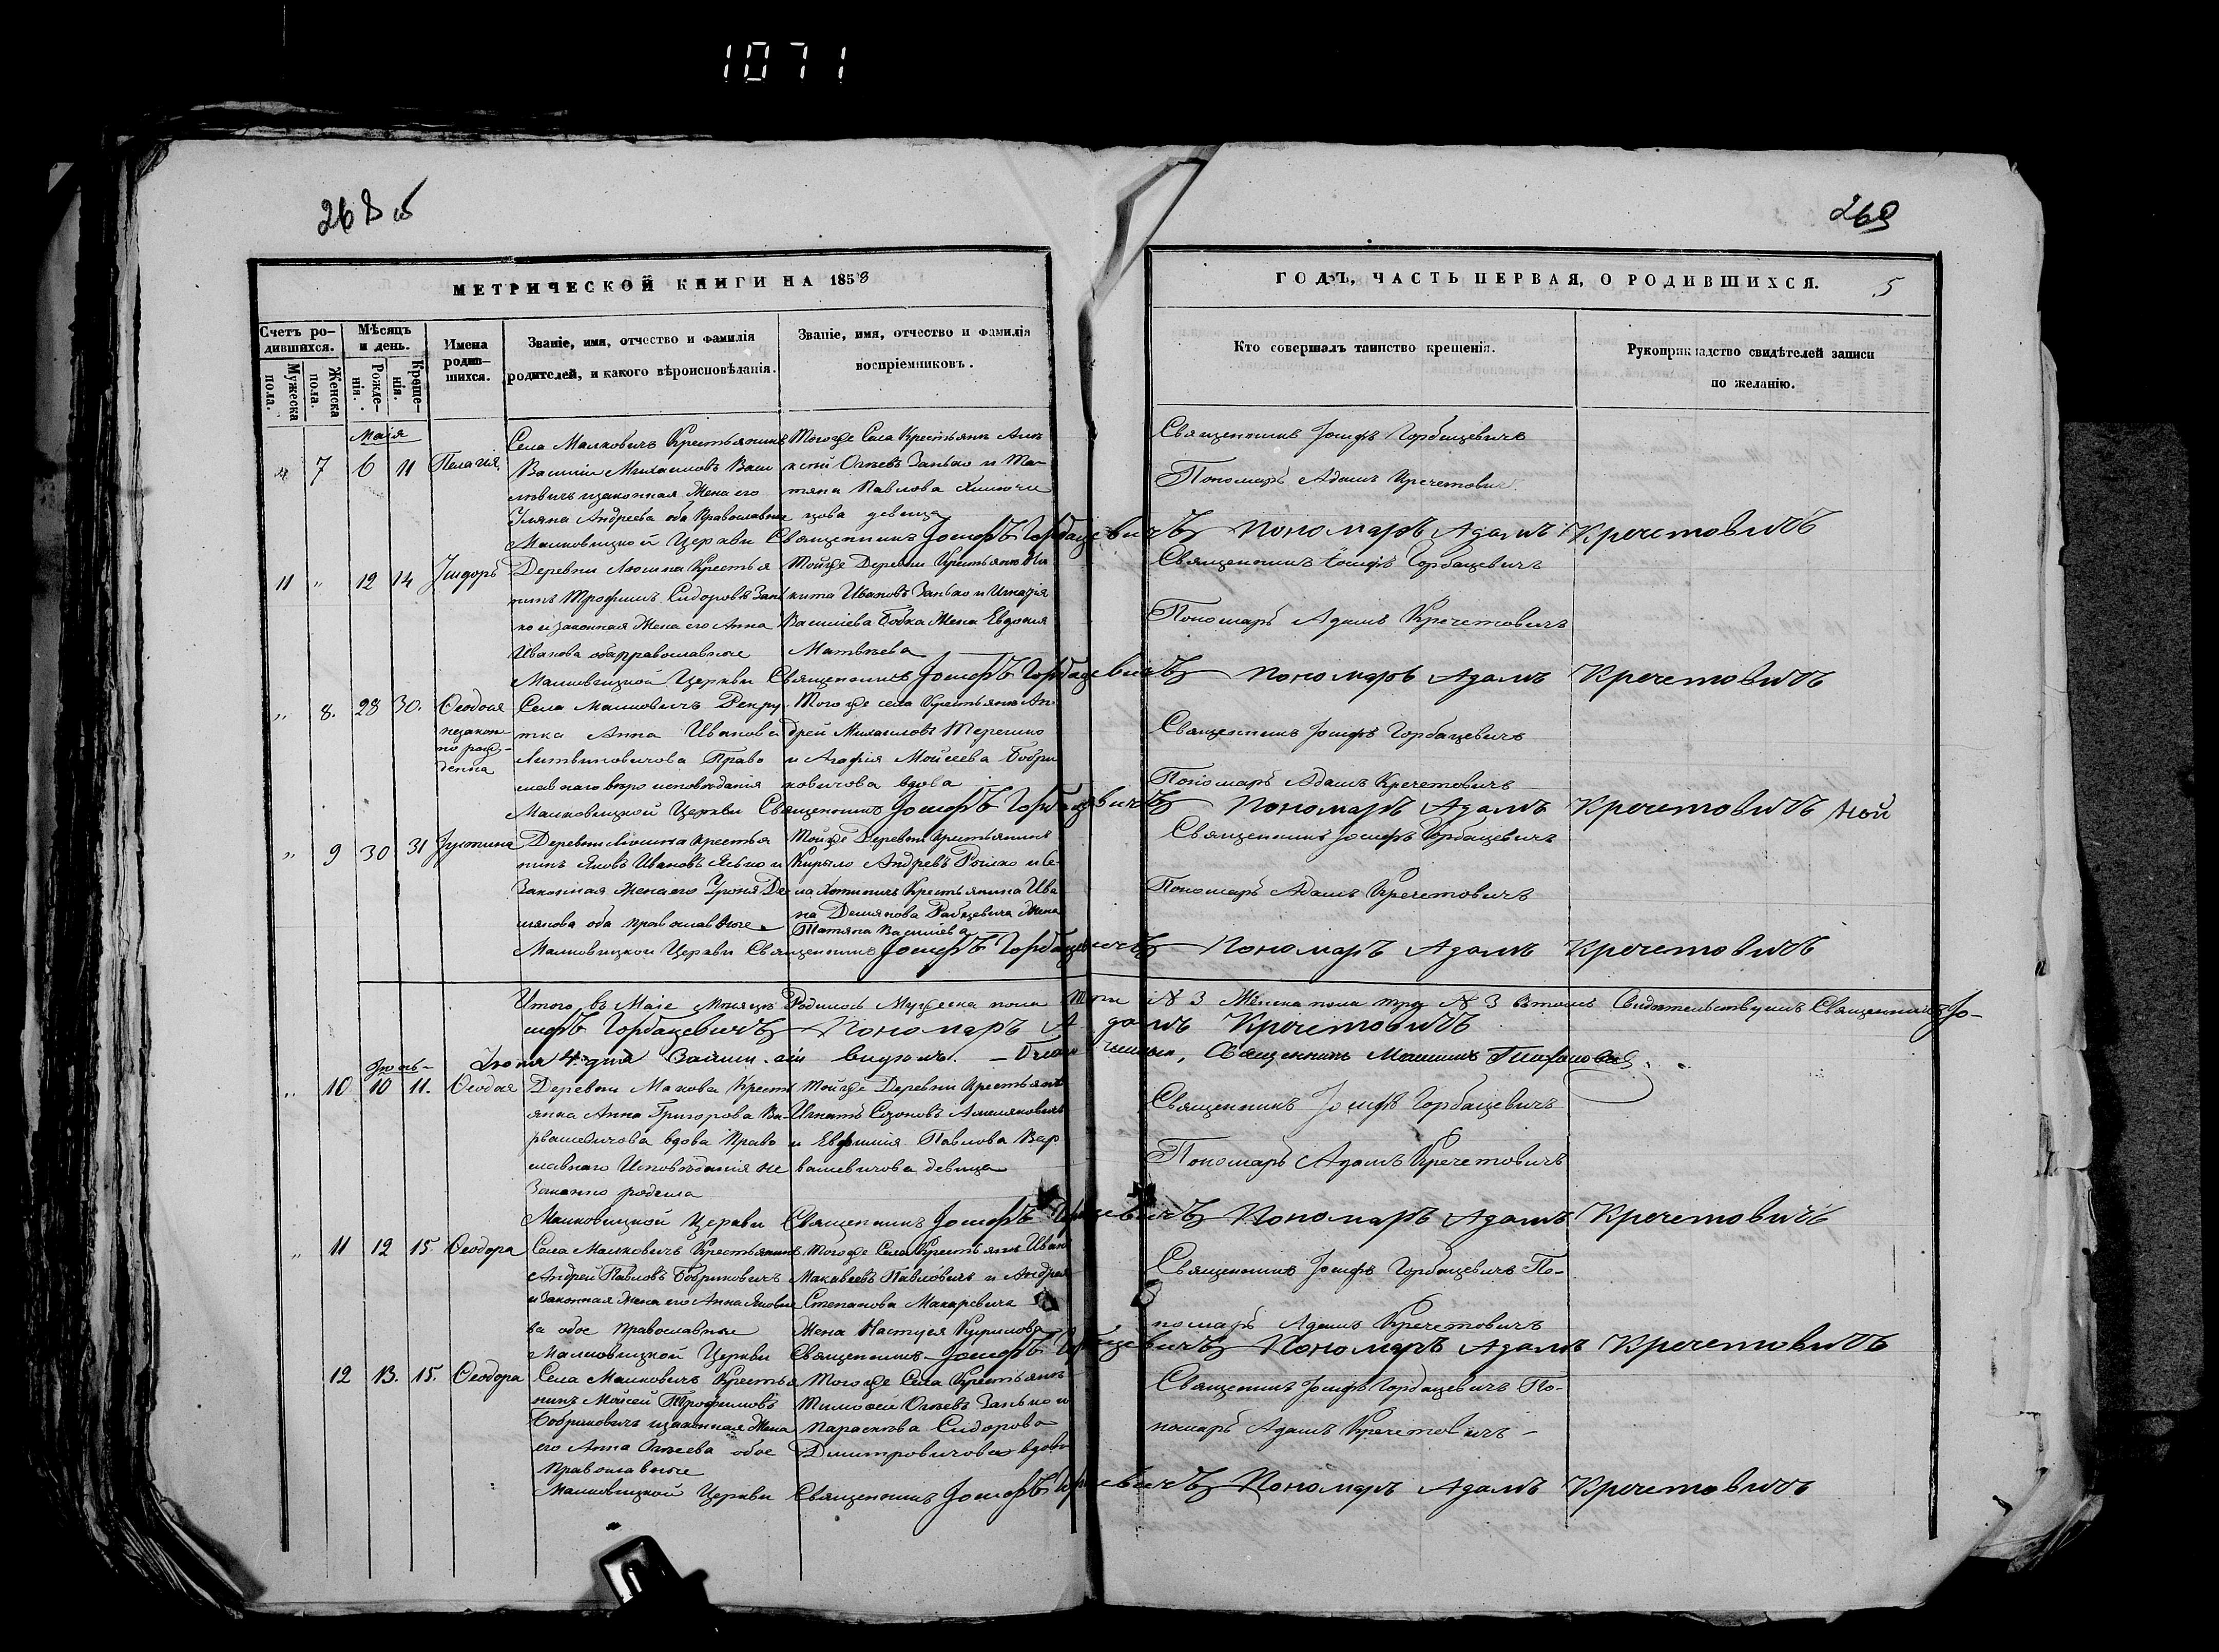 1071
268 об
269
МЕТРИЧЕСКОЙ КНИГИ НА 1853
ГОДЪ, ЧАСТЬ ПЕРВАЯ, О РОДИВШИХСЯ.
5
Счетъ ро-
дившихся.
Мужеска
пола.
Женска
пола.
Мѣсяцъ
и день.
Рожде-
нія.
Креще-
нія.
Имена
родив-
шихся.
Званіе, имя, отчество и фамилія
родителей, и какого вѣроисповѣданія.
Званіе, имя, отчество и фамилія
воспріемниковъ.
Кто совершалъ таинство крещенія.
Рукоприкладство свидѣтелей записи
по желанію.
Маія
7 6 11 Пелагія
Села Малковичъ Крестьянинъ
Василій Михаиловъ Васи
левичъ изаконная Жена его
Ульяна Андреева оба Православные
Тогоже Села Крестьянъ Але
ксей Олѣевъ Занько и Та-
тяна Павлова
девица
Священникъ Іосифъ Горбацевичъ
Пономарь Адамъ Кречетовичъ
Малковицкой Церкви Священникъ Іосифъ Горбацевичъ Пономаръ Адамъ Кречетовичъ
11 " 12 14 Јсидоръ
Деревни Люсина Крестья
нинъ Трофимъ Сидоровъ Зань
ко и законная Жена его Анна
Иванова оба православные
Тойже Деревни Крестьянъ Ни
кита Ивановъ Занько и Игнатія
Василіева Бобка Жена Евдокия
Матвѣева
Священникъ Іосифъ Горбацевичъ
Пономарь Адамъ Кречетовичъ
Малковицкой Церкви Священникъ Іосифъ Горбацевичъ Пономаръ Адамъ Кречетовичъ
" 8. 28 30. Ѳеодосія
незакон-
но рож-
денна
Села Малковичъ Рекру
тка Анна Иванова
Литвиновичова Право
славнаго вѣро исповѣданія
Того же села Крестьянъ Ан
дрей Михаиловъ Терешко
и Агафія Мойсеева Бобри
ковичова вдова
Священникъ Іосифъ Горбацевичъ
Пономарь Адамъ Кречетовичъ
Малковицкой Церкви Священникъ Іосифъ Горбацевичъ Пономаръ Адамъ Кречетовичъ
" 9 30 31 Јустина
Деревни Люсина Крестья
нинъ Яковъ Ивановъ Ясько и
Законная Жена его Уліоня Де
миянова оба православные
Тойже Деревни Крестьянинъ
Кирыло Андревъ Рошко и Се
ла Хотиничъ Крестьянина Ива
на Демянова Рабцевича Жена
Татяна Василіева
Священникъ Іосифъ Горбацевичъ
Пономарь Адамъ Кречетовичъ
Малковицкой Церкви Священникъ Іосифъ Горбацевичъ Пономаръ Адамъ Кречетовичъ
Итого въ Маіе Месяцѣ Родилось Мужеска пола N 3 Женска пола три N 3 втомъ Свидѣтельствуемъ Священникъ Іо-
сифъ Горбацевичъ Пономаръ Адамъ Кречетовичъ
Іюня 4 дня Священникъ
" 10 10 11. Ѳеодосія
Деревни Макова Кресть
янка Анна Григорова Ва-
рвашевичова вдова Право
славнаго Исповѣданія не
Законно родила
Тойже Деревни Крестьянъ
Игнатъ Созоновъ Амеляновичъ
и Евфимія Павлова Вар
вашевичова девица
Священникъ Іосифъ Горбацевичъ
Пономарь Адамъ Кречетовичъ
Малковицкой Церкви Священникъ Іосифъ Горбацевичъ Пономаръ Адамъ Кречетовичъ
" 11 12 15 Ѳеодора
Села Малковичъ Крестьянинъ
Андрей Павловъ Бобриковичъ
и Законная Жена его Анна Яковле
ва обое православные
Тогоже Села Крестьянъ Иванъ
Макавеевъ Павловичъ и Андрея
Степанова Макаревича
Жена Настусея Кирилова
Священникъ Іосифъ Горбацевичъ По-
номарь Адамъ Кречетовичъ
Малковицкой Церкви Священникъ Іосифъ Горбацевичъ Пономаръ Адамъ Кречетовичъ
12 13. 15. Ѳеодора
Села Малковичъ Крестья
нинъ Мойсей Трофимовъ
Бобриковичъ изаконная Жена
его Анна обое
Православные
Того же Села Крестьянъ
Тимоѳей Олѣевъ Занько и
Параскева Сидорова
Димитровичова вдова
Священникъ Іосифъ Горбацевичъ По-
номарь Адамъ Кречетовичъ
Малковицкой Церкви Священникъ Іосифъ Горбацевичъ Пономаръ Адамъ Кречетовичъ